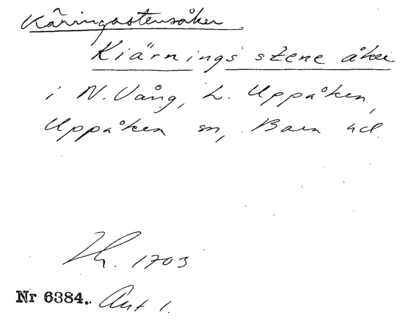 Käringastensåker
Kiärnings stene åker
i N. Vång, L. Uppåkra,
Uppåkra sn, Bara hd.
Lh. 1703
Nr 6384. Avt 1.